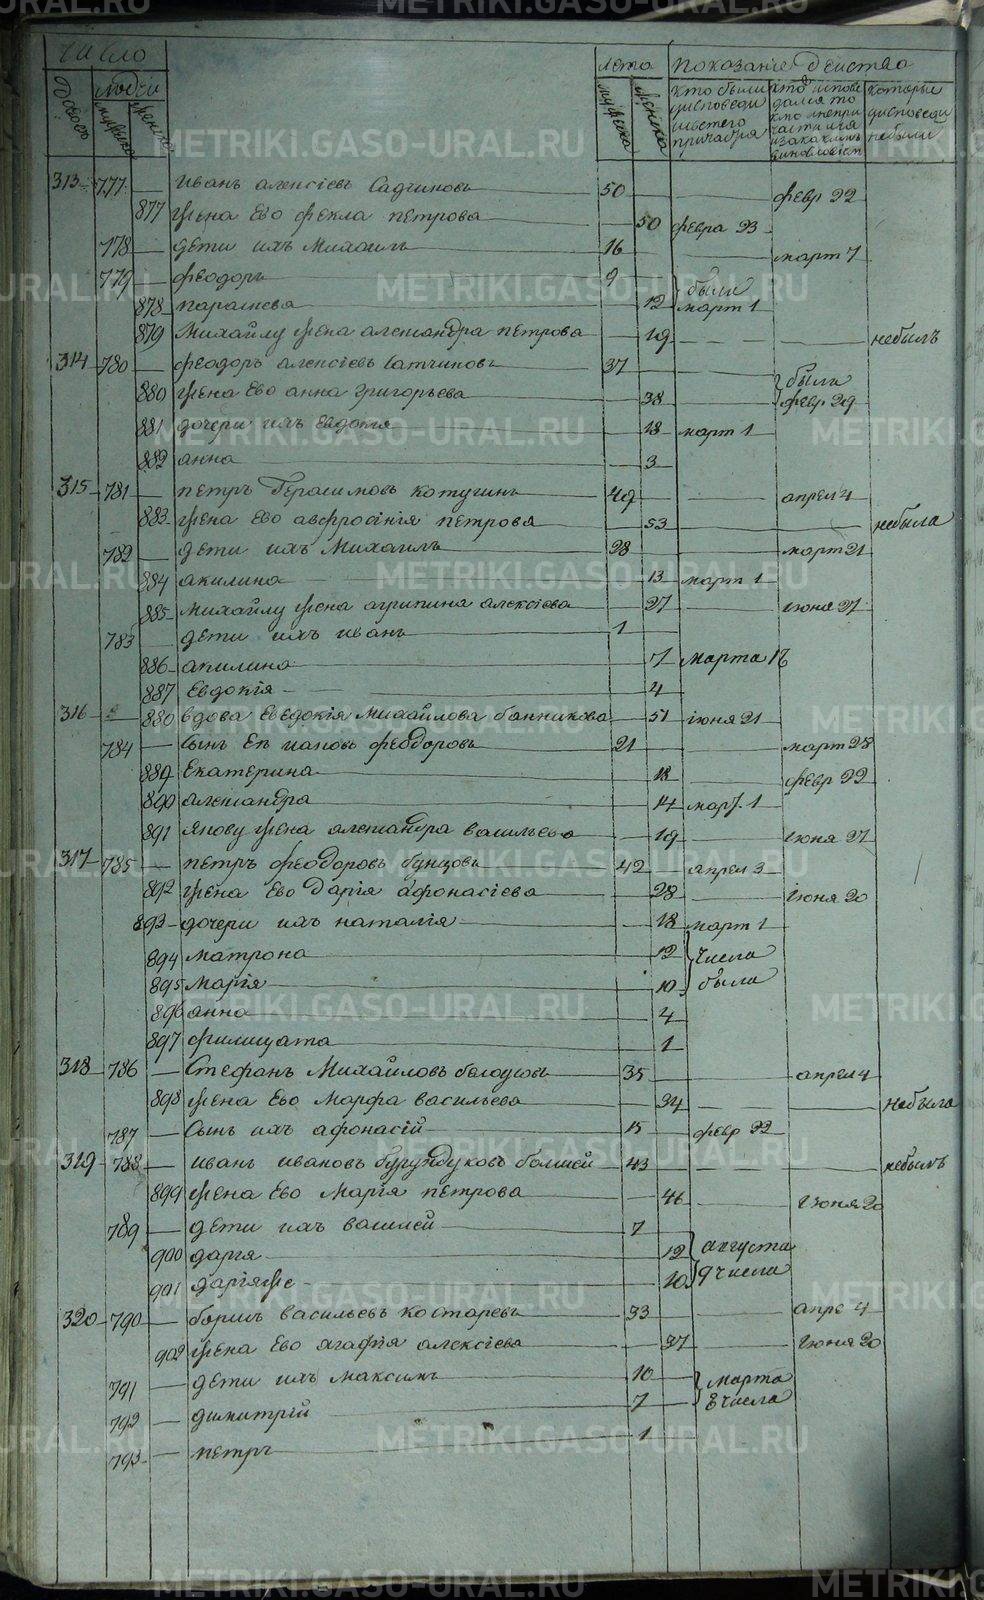 Число Лета Показание действа
Дворовъ Людей мужеска женска
мужеска женска кто были у исповеди и святого причастия кто исповедался то кмо а непричастился и за какимъ виновством которые у исповеди не были
313 777 — Иванъ алексiевъ Садчиковъ 50 февр 22
877 жена Ево фекла петрова 50 февра 23
778 — дети ихъ Михаилъ 16 март 7
779 — феодоръ 9 были
878 парасиева 12 март 1
879 Михайлу жена александра петрова 19 небылъ
314 780 — феодоръ алексiевъ сатчиковъ 37 были
880 жена Ево анна григорьева 38 февр 29
881 дочери ихъ Евдокiя 18 март 1
882 анна 3
315 781 — петръ Герасимовъ котугинъ 49 апрел 4
883 жена Ево авфросiнiя петрова 53 небыла
782 — дети ихъ Михаилъ 28 март 21
884 акилина 13 март 1
885 Михайлу жена агрипина алексiева 27 iюня 27
783 — дети ихъ иванъ 1
886 акилина 7 марта 16
887 Евдокiя 4
316 — 880 вдова Еведокiя Михайлова банникова 51 iюня 21
784 — сынъ Еп иаковъ феодоровъ 21 март 28
889 Екатерина 18 февр 22
890 александра 14 март 1
891 Якову жена александра васильева 19 iюня 27
317 785 — петръ феодоровъ бунцовъ 42 апрел 3
892 жена Ево Дарiя афонасiева 28 iюня 20
893 дочери ихъ наталiя 18 март 1
894 матрона 12 числа
895 марiя 10 была
896 анна 4
897 филицата 1
318 786 — Стефанъ Михайловъ белоусовъ 35 апрел 4
898 жена Ево Марфа васильева 34 небыла
787 — Сынъ ихъ афонасiй 15 февр 22
319 788 — иванъ ивановъ бурундуковъ болшей 43 небылъ
899 жена Ево Марiя петрова 46 iюня 20
789 — дети ихъ василей 7
900 дарiя 12 августа
901 дарiяже 10 9 числа
320 790 — борисъ васильевъ костаревъ 33 апре 4
902 жена Ево агафiя алексiева 37 iюня 20
791 — дети ихъ максимъ 10 марта
792 — димитрiй 7 8 числа
793 — петръ 1